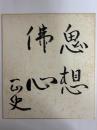 想
佛心
正史